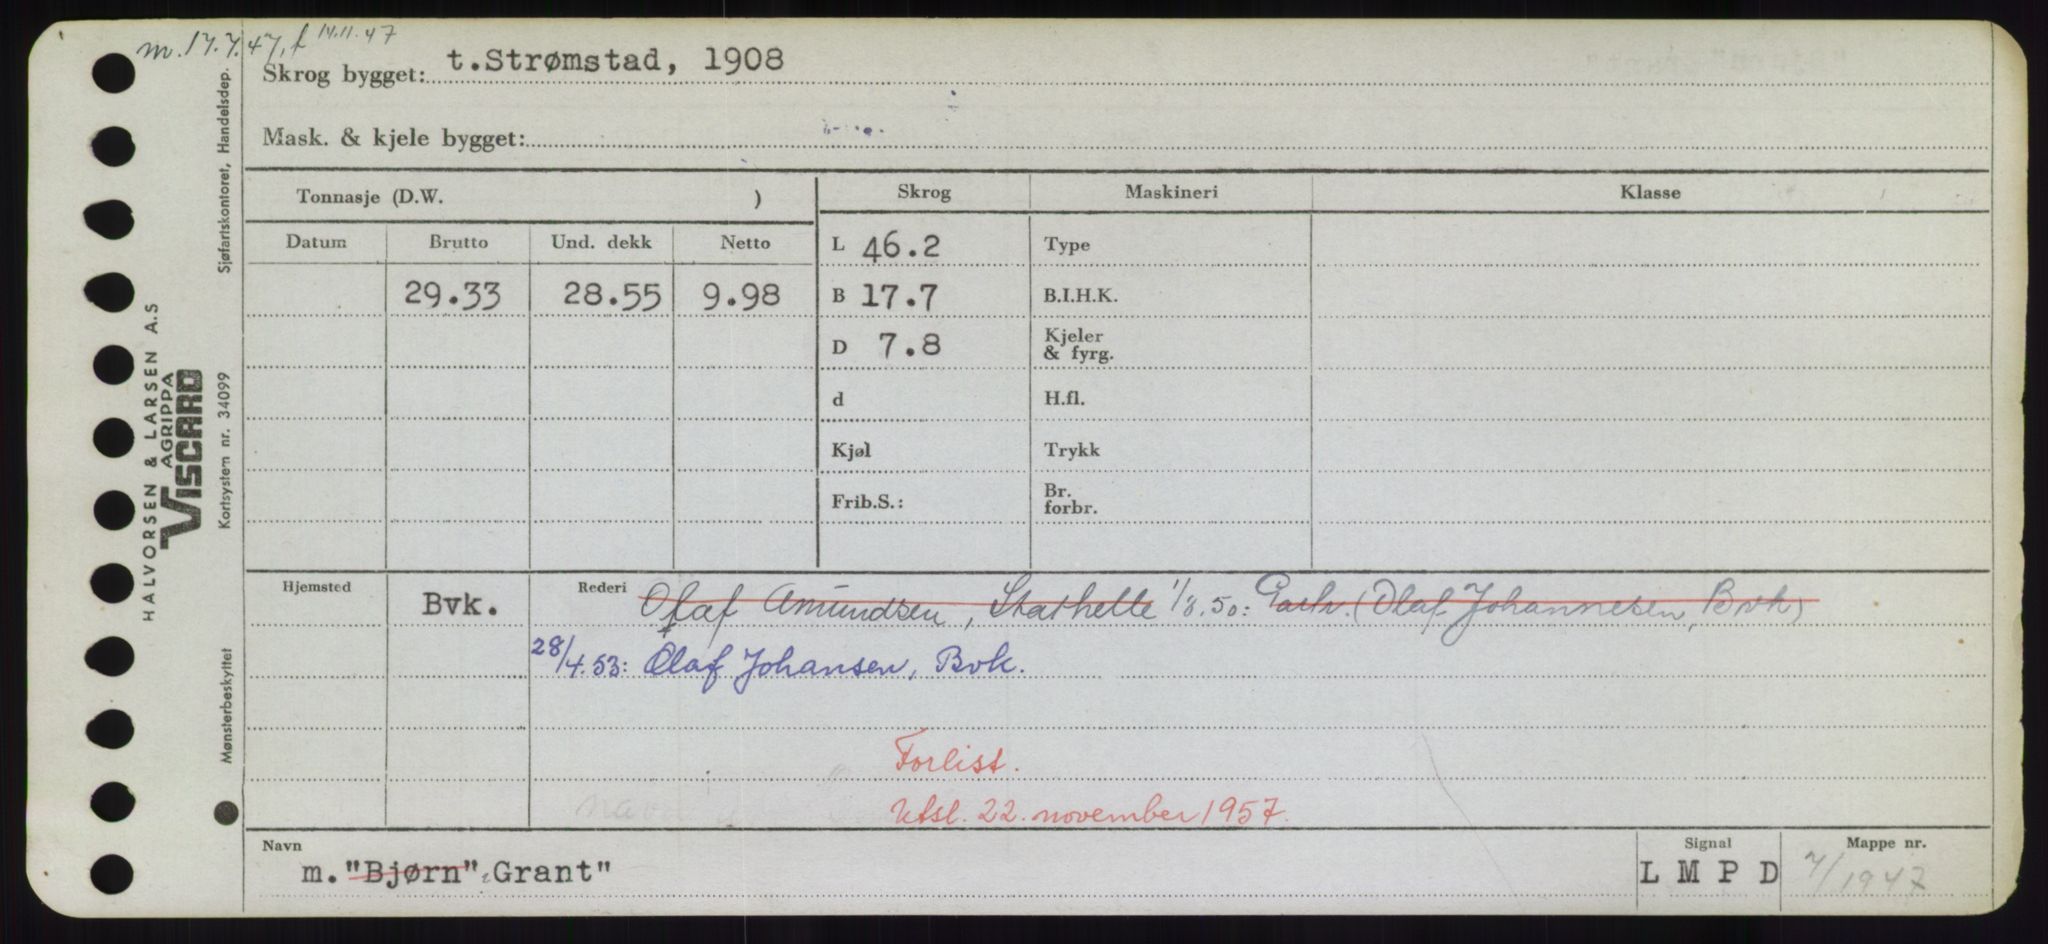 m. 17.7.47, f 14.11.47
Skrog bygget: t.Strømstad, 1908
Mask. & kjele bygget:
Tonnasje (D.W. )
Skrog Maskineri Klasse
Datum Brutto Und. dekk Netto
29.33 28.55 9.98
L 46.2 Type
B 17.7 B.I.H.K.
D 7.8 Kjeler & fyrg.
d H.fl.
Kjøl Trykk
Frib.S.: Br. forbr.
Hjemsted Bvk. Rederi Olaf Amundsen, Stathelle 1/8.50: Partr. (Olaf Johannesen, Bvk)
28/4.53: Olaf Johansen, Bvk.
Forlist.
Utsl. 22. november 1957.
Navn m. "Bjørn" "Grant"
Signal L M P D
Mappe nr. 7/1947
Sjøfartskontoret, Handelsdep.
HALVORSEN & LARSEN A.S
AGRIPPA
VISCARD
Kortsystem nr. 34099
Mønsterbeskyttet